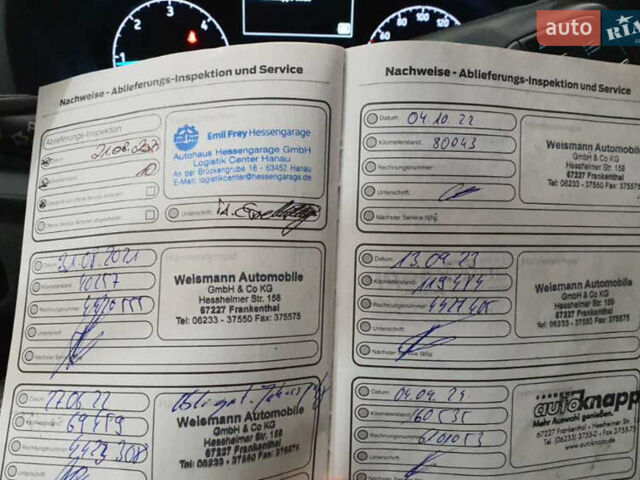 auto RIA
1 2 3 4
60 80 100 120
Nachweise - Ablieferungs-Inspektion und Service
Ablieferungs-Inspektion
10
Emil Frey Hessengarage
Autohaus Hessengarage GmbH
Logistik Center Hanau
An der Brückengrube 16 - 63452 Hanau
E-Mail: logistikcenter@hessengarage.de
Unterschrift:
31.08.2021
Kilometerstand: 40257
Rechnungsnummer:
Unterschrift
Nächster Service
Händlerstempel
Weismann Automobile
GmbH & Co KG
Hessheimer Str. 158
67227 Frankenthal
Tel: 06233 - 37550 Fax: 375575
Datum: 17.06.22
Kilometerstand: 69459
Rechnungsnummer: 4423308
Unterschrift
Weismann Automobile
GmbH & Co KG
Hessheimer Str. 158
67227 Frankenthal
Tel: 06233 - 37550 Fax: 375575
Nachweise - Ablieferungs-Inspektion und Service
Datum: 04.10.22
Kilometerstand: 80043
Rechnungsnummer:
Unterschrift:
Nächster Service fällig:
Weismann Automobile
GmbH & Co KG
Hessheimer Str. 158
67227 Frankenthal
Tel: 06233 - 37550 Fax: 375575
Datum: 13.09.23
Kilometerstand: 119484
Rechnungsnummer: 4427405
Unterschrift
Nächster Service fällig:
Weismann Automobile
GmbH & Co KG
Hessheimer Str. 158
67227 Frankenthal
Tel: 06233 - 37550 Fax: 375575
Datum: 04.09.24
Kilometerstand: 160535
Rechnungsnummer: 6101053
Unterschrift
Nächster Service fällig:
autoknapp
Mehr Auswahl genießen.
67227 Frankenthal
www.autoknapp.de